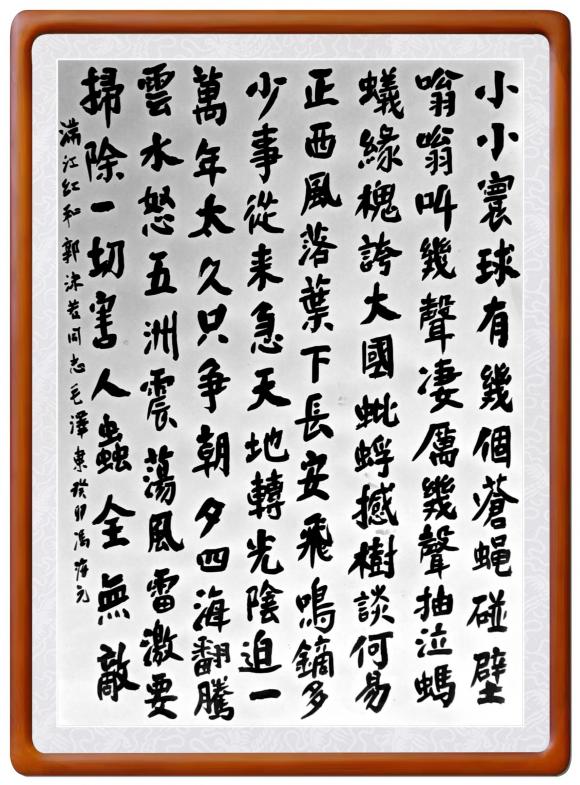 小小寰球有幾個蒼蠅碰壁
嗡嗡叫幾聲凄厲幾聲抽泣螞
蟻緣槐誇大國蚍蜉撼樹談何易
正西風落葉下長安飛鳴鏑多
少事從来急天地轉光陰迫一
萬年太久只争朝夕四海翻騰
雲水怒五洲震蕩風雷激要
掃除一切害人蟲全無敵
滿江紅和郭沫若同志毛澤東癸卯馮元